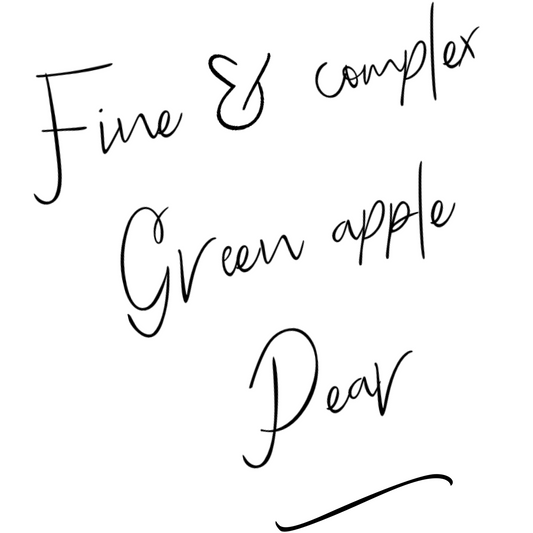 Fine & complex
Green apple
Pear